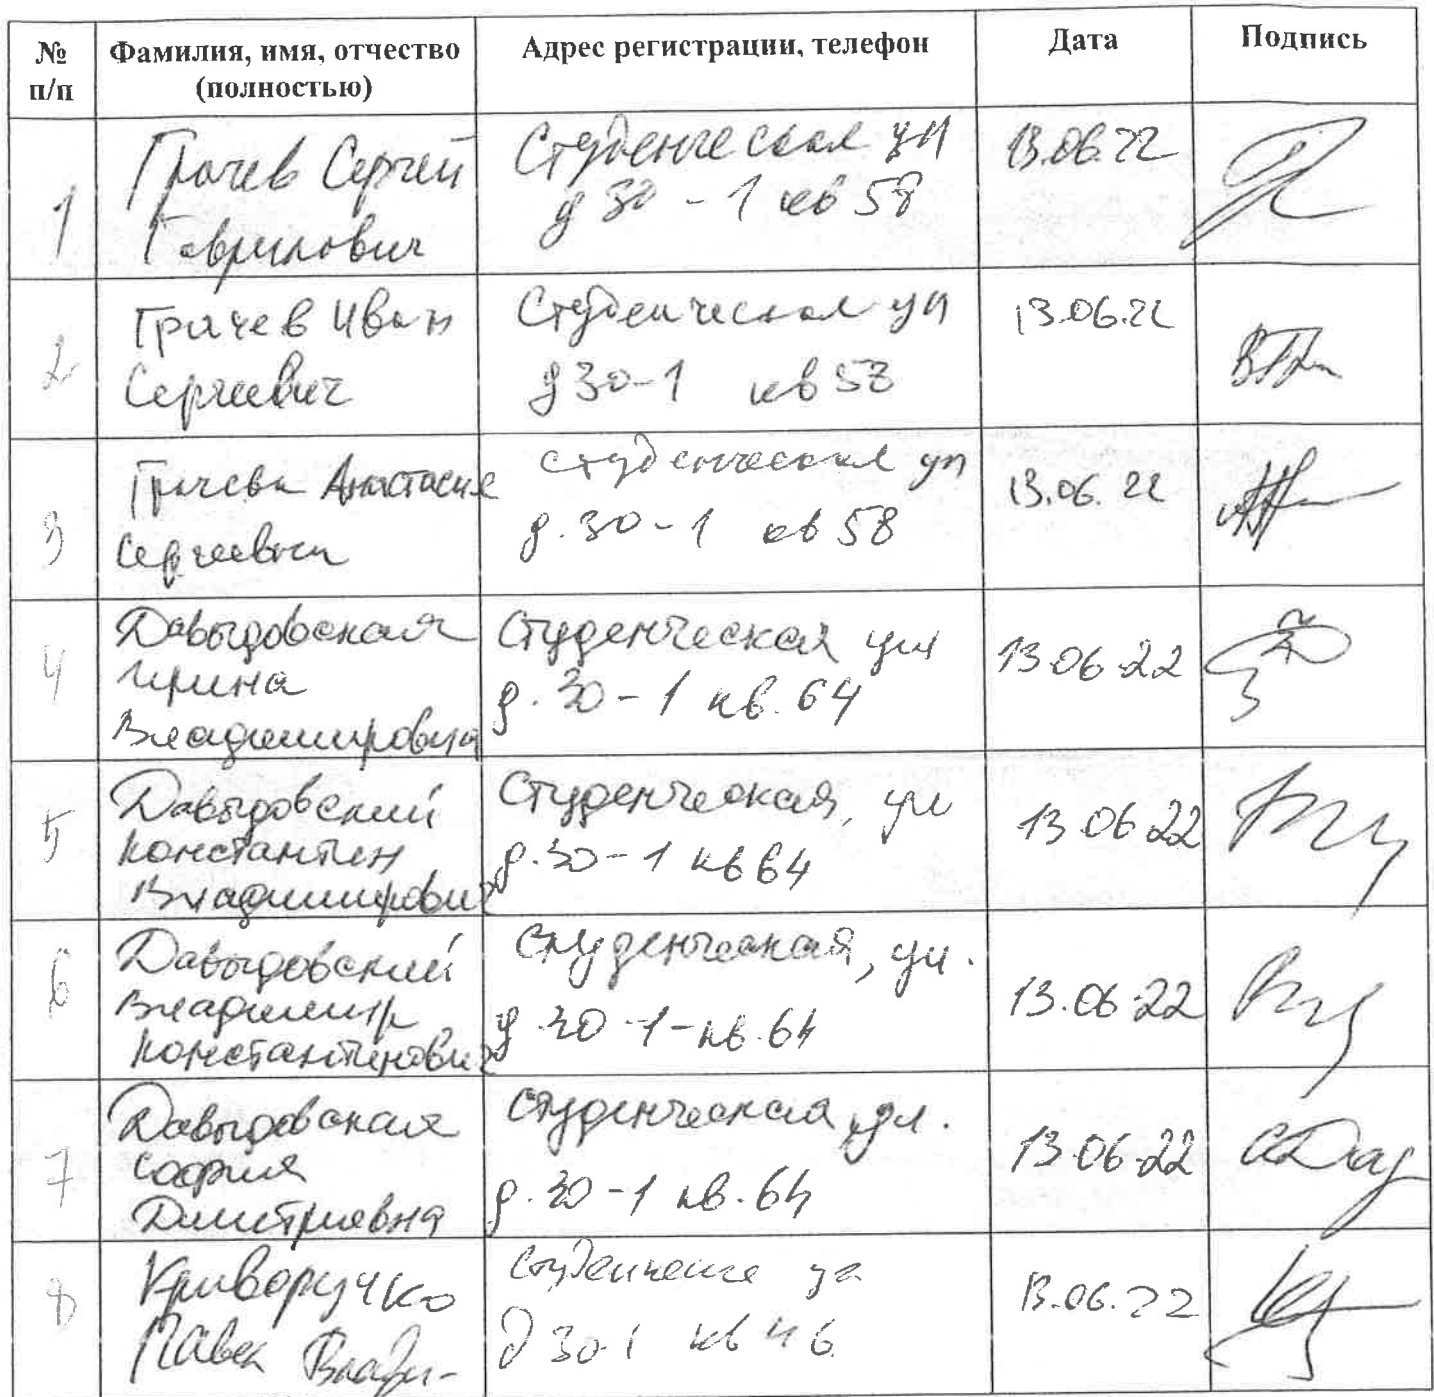 № п/п
Фамилия, имя, отчество (полностью)
Адрес регистрации, телефон
Дата
Подпись
1
Грачев Сергей
Гаврилович
Студенческая ул
д 30 - 1 кв 58
13.06.22
2
Грачев Иван
Сергеевич
Студенческая ул
д 30-1 кв 58
13.06.22
3
Грачева Анастасия
Сергеевна
студенческая ул
д. 30-1 кв 58
13.06.22
4
Давыдовская
Ирина
Владимировна
Студенческая ул
д. 30-1 кв. 64
13.06.22
5
Давыдовский
Константин
Владимирович
Студенческая, ул
д. 30-1 кв 64
13.06.22
6
Давыдовский
Владимир
Константинович
Студенческая, ул.
д. 30-1-кв. 64
13.06.22
7
Давыдовская
София
Дмитриевна
Студенческая, ул.
д. 30-1 кв. 64
13.06.22
8
Криворучко
Павел Влади-
ул
д 30-1 кв 46
13.06.22